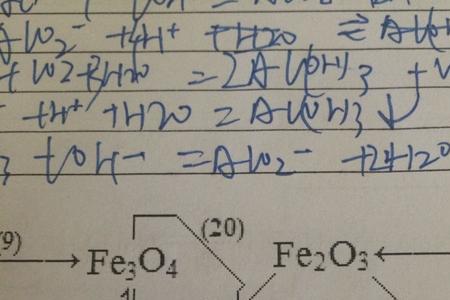 AlO2⁻ +4H⁺ +H2O ⇌ Al(OH
+CO2+3H2O = 2Al(OH)3 +
⁻ +H⁺ +H2O = Al(OH)3↓
3 +OH⁻ = AlO2⁻ +2H2O
(9) → Fe₃O₄ (20) Fe₂O₃ ←